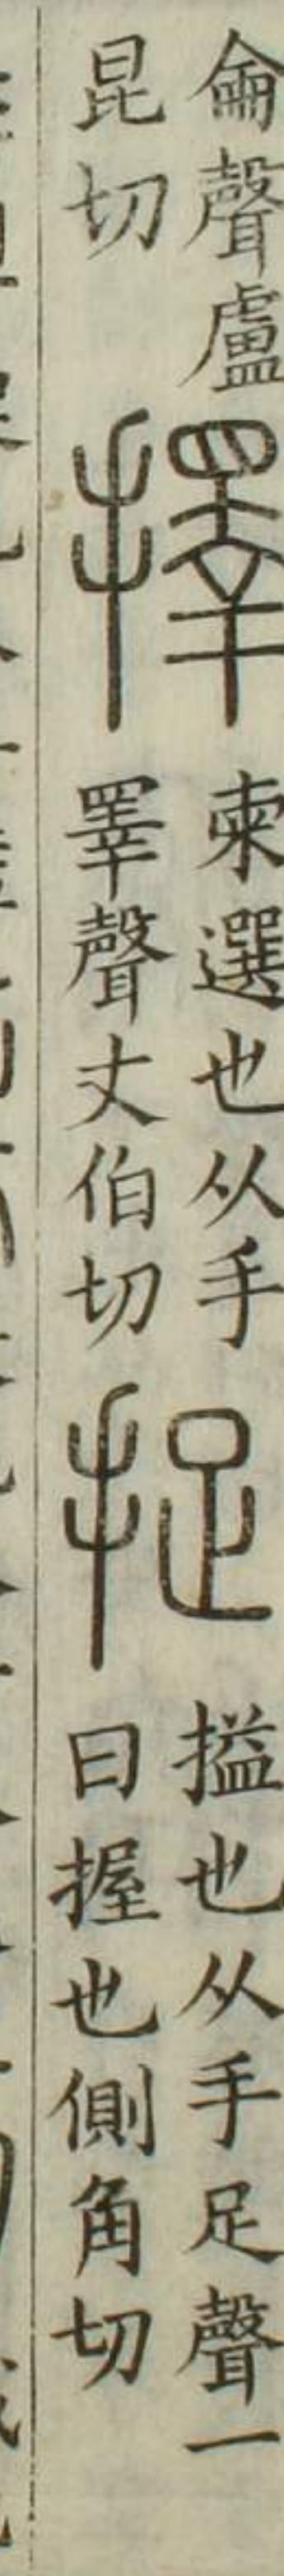 侖聲盧
昆切
擇
柬選也从手
睪聲丈伯切
捉
搤也从手足聲一
曰握也側角切